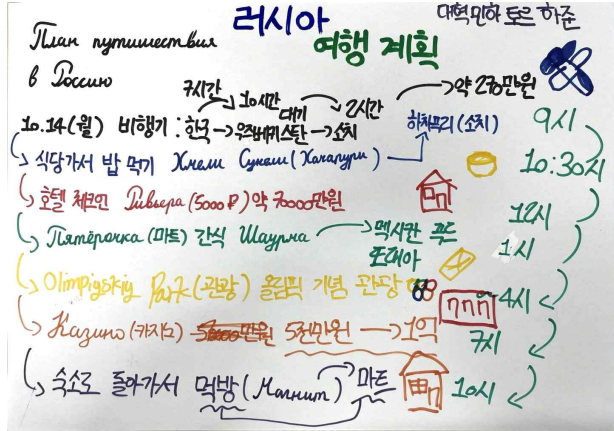 러시아
여행 계획
План путишествия
в Россию
7시간 10시간 대기 2시간 약 270만원
10.14(월) 비행기 : 한국 → 우즈베키스탄 → 소치
9시
식당가서 밥 먹기 Хмели Сунели (Хачапури) 하차푸리 (소치)
10:30시
호텔 체크인 Ривьера (5000₽) 약 70000만원
12시
Пятёрочка (마트) 간식 Шаурма → 멕시칸 푸드
또띠아
1시
Olimpiyskiy Park (관광) 올림픽 기념 관광
4시
Казино (카지노) 5천만원 → 1억
7시
숙소로 돌아가서 먹방 (Магнит) 마트
10시